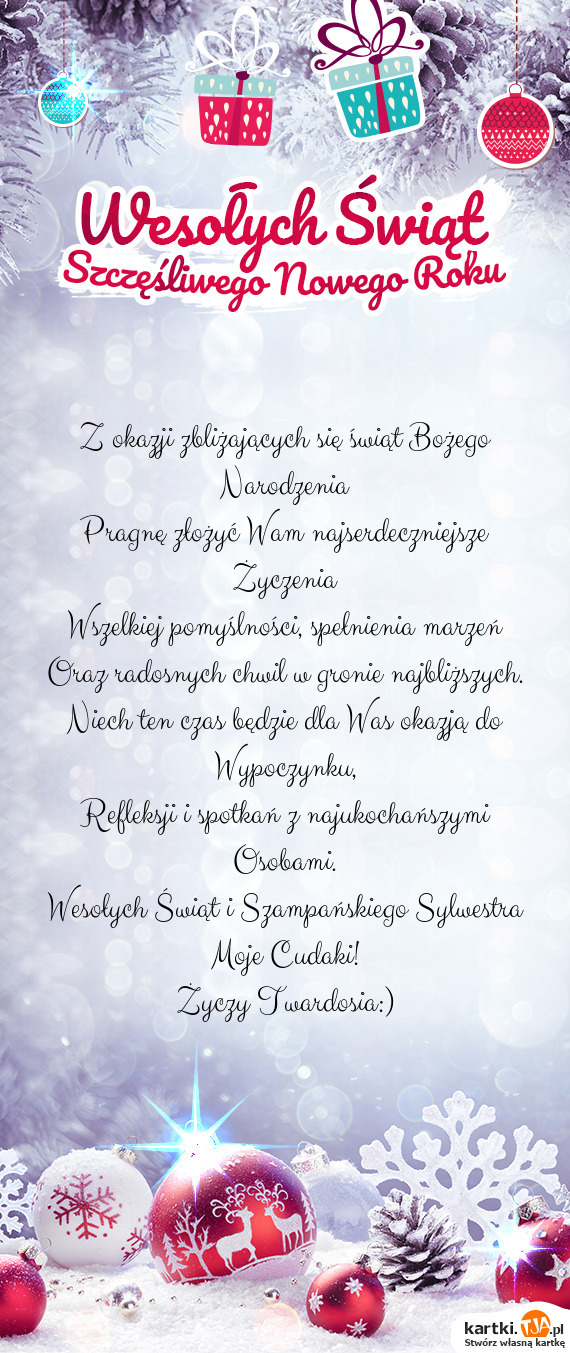 Wesołych Świąt
Szczęśliwego Nowego Roku
Z okazji zbliżających się świąt Bożego
Narodzenia
Pragnę złożyć Wam najserdeczniejsze
Życzenia
Wszelkiej pomyślności, spełnienia marzeń
Oraz radosnych chwil w gronie najbliższych.
Niech ten czas będzie dla Was okazją do
Wypoczynku,
Refleksji i spotkań z najukochańszymi
Osobami.
Wesołych Świąt i Szampańskiego Sylwestra
Moje Cudaki!
Życzy Twardosia:)
kartki.TJA.pl
Stwórz własną kartkę